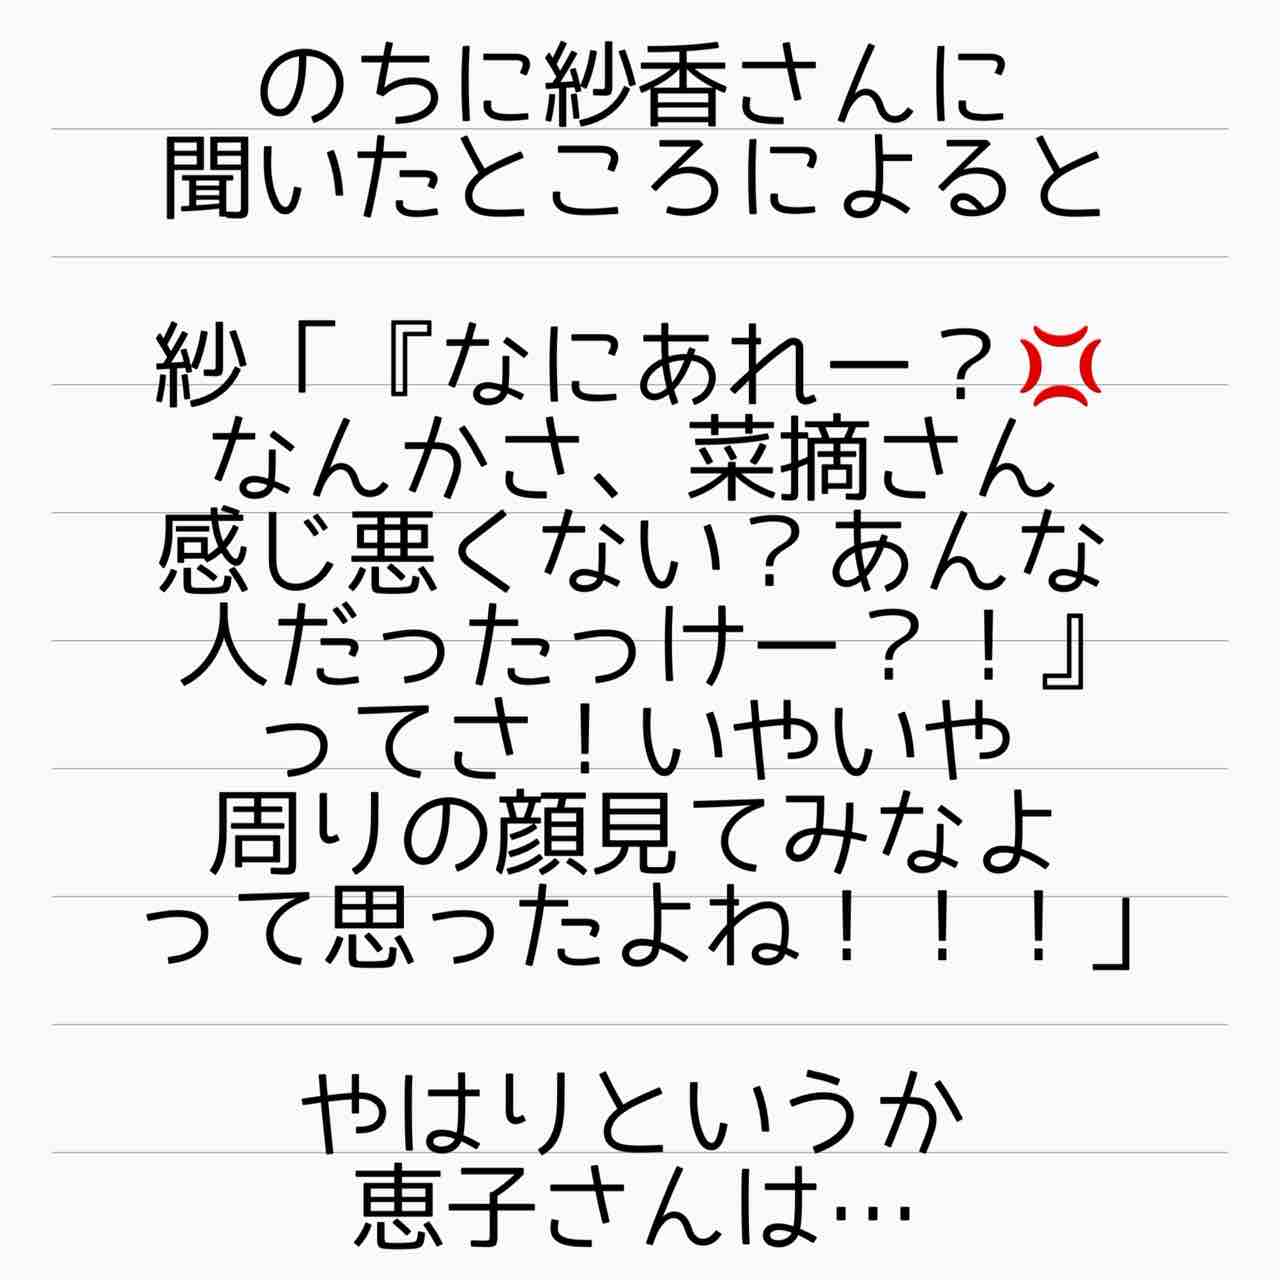 のちに紗香さんに
聞いたところによると
紗「『なにあれー？💢
なんかさ、菜摘さん
感じ悪くない？あんな
人だったっけー？！』
ってさ！いやいや
周りの顔見てみなよ
って思ったよね！！！」
やはりというか
恵子さんは…